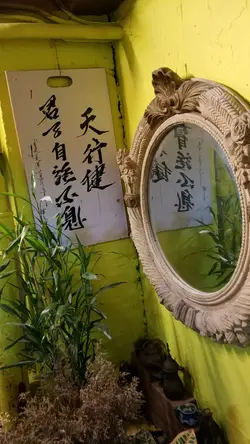 天行健
君子自強不息